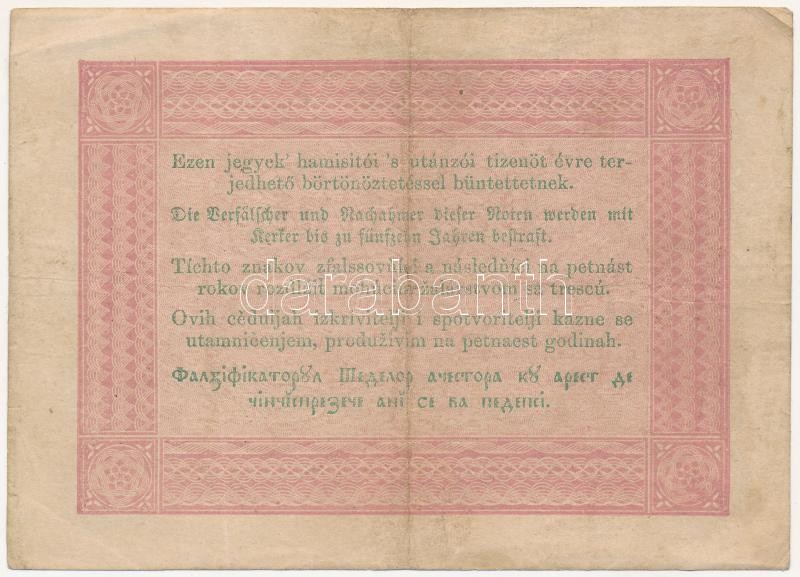 Ezen jegyek' hamisitói 's utánzói tizenöt évre ter-
jedhető börtönöztetéssel büntettetnek.
Die Verfälscher und Nachahmer dieser Noten werden mit
Kerker bis zu fünfzehn Jahren bestraft.
Tíchto znakov zfalssovňíci a následňíci na petnást
rokov žalárstvom sa trescú.
darabanth
Ovih cĕduljah izkrivitelji i spotvoritelji kazne se
utamničenjem, produživim na petnaest godinah.
Фалзіфікаторꙋл Шеделор ачестора кꙋ арест де
чінчіспрезече ані се ва педепсі.